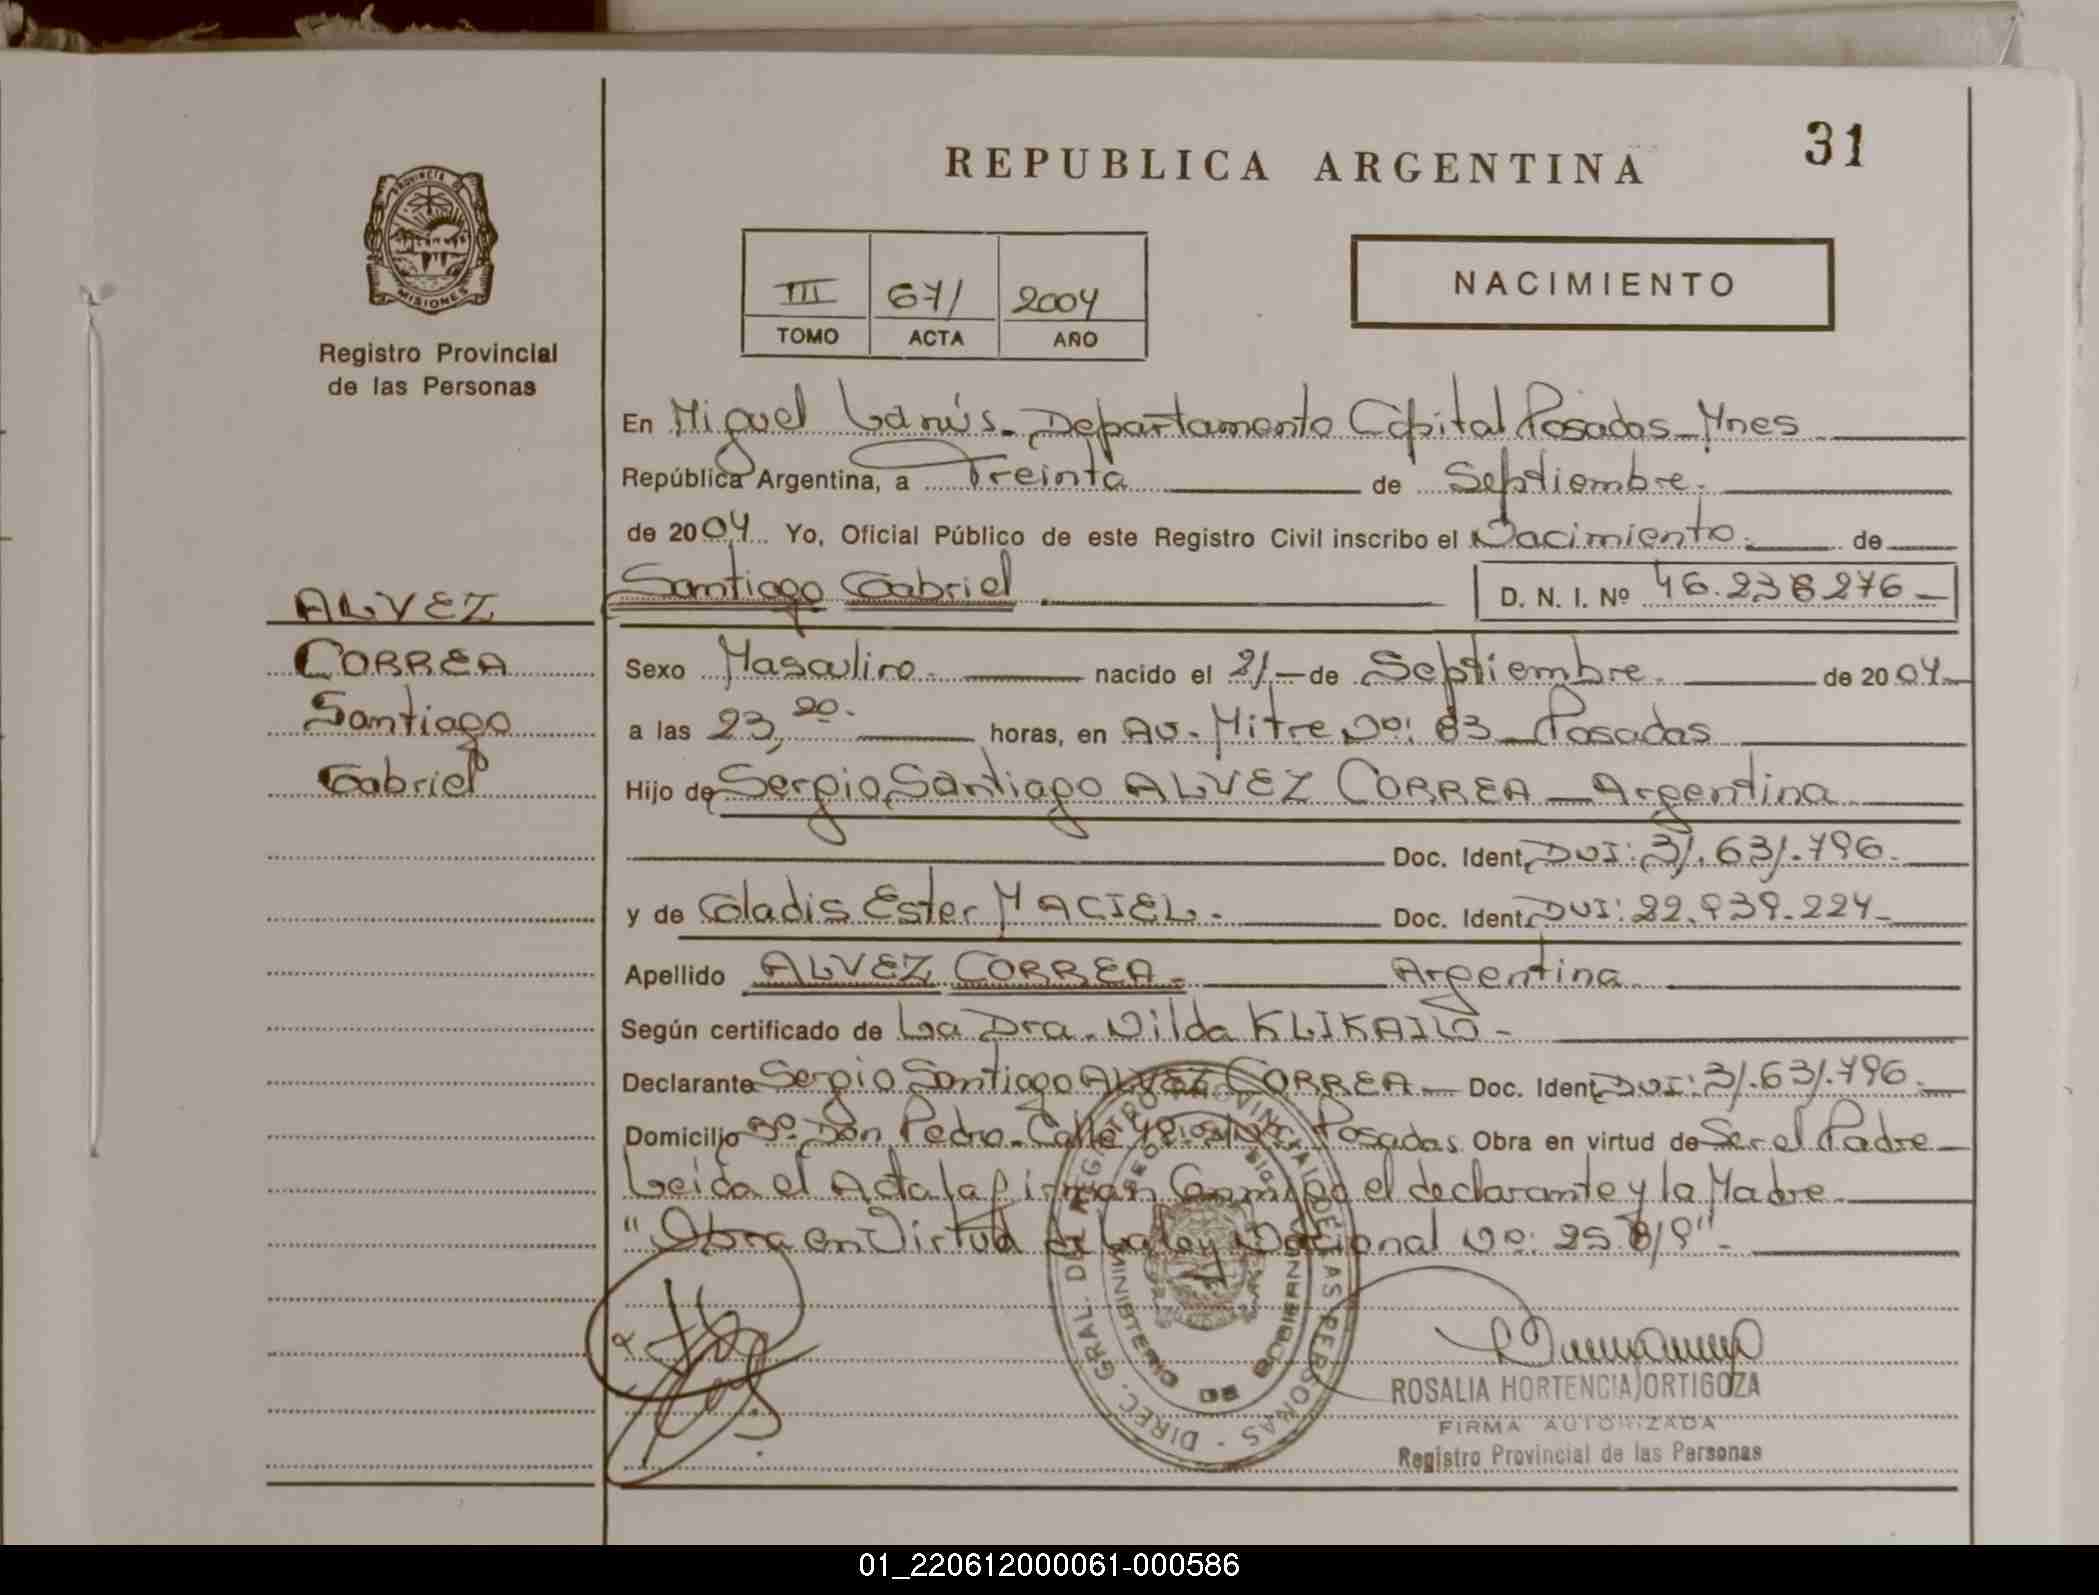 REPUBLICA ARGENTINA
31
PROVINCIA DE
MISIONES
Registro Provincial
de las Personas
III 671 2004
TOMO ACTA AÑO
NACIMIENTO
En Miguel Lanús - Departamento Capital Posadas - Mnes
República Argentina, a Treinta de Septiembre.
de 2004 Yo, Oficial Público de este Registro Civil inscribo el Nacimiento. de
Santiago Gabriel D. N. I. Nº 46.238276
ALVEZ
CORREA
Santiago
Gabriel
Sexo Masculino. nacido el 21 - de Septiembre. de 2004
a las 23,20. horas, en Av. Mitre Nº: 83 - Posadas
Hijo de Sergio Santiago ALVEZ CORREA - Argentina
Doc. Ident. DNI: 31.631.796.
y de Gladis Ester MACIEL. Doc. Ident. DNI: 22.939.224
Apellido ALVEZ CORREA. Argentina
Según certificado de La Dra. Nilda KLIKAILO -
Declarante Sergio Santiago ALVEZ CORREA - Doc. Ident. DNI: 31.631.796.
Domicilio Bº. Don Pedro - Calle Posadas Obra en virtud de Ser el Padre
Leída el Acta la firman Conmigo el declarante y la Madre
"Obra en Virtud de la ley Nacional Nº: 25.819".
DIREC. GRAL. DEL REGISTRO PROVINCIAL DE LAS PERSONAS
MINISTERIO DE GOBIERNO
ROSALIA HORTENCIA ORTIGOZA
FIRMA AUTORIZADA
Registro Provincial de las Personas
01_220612000061-000586